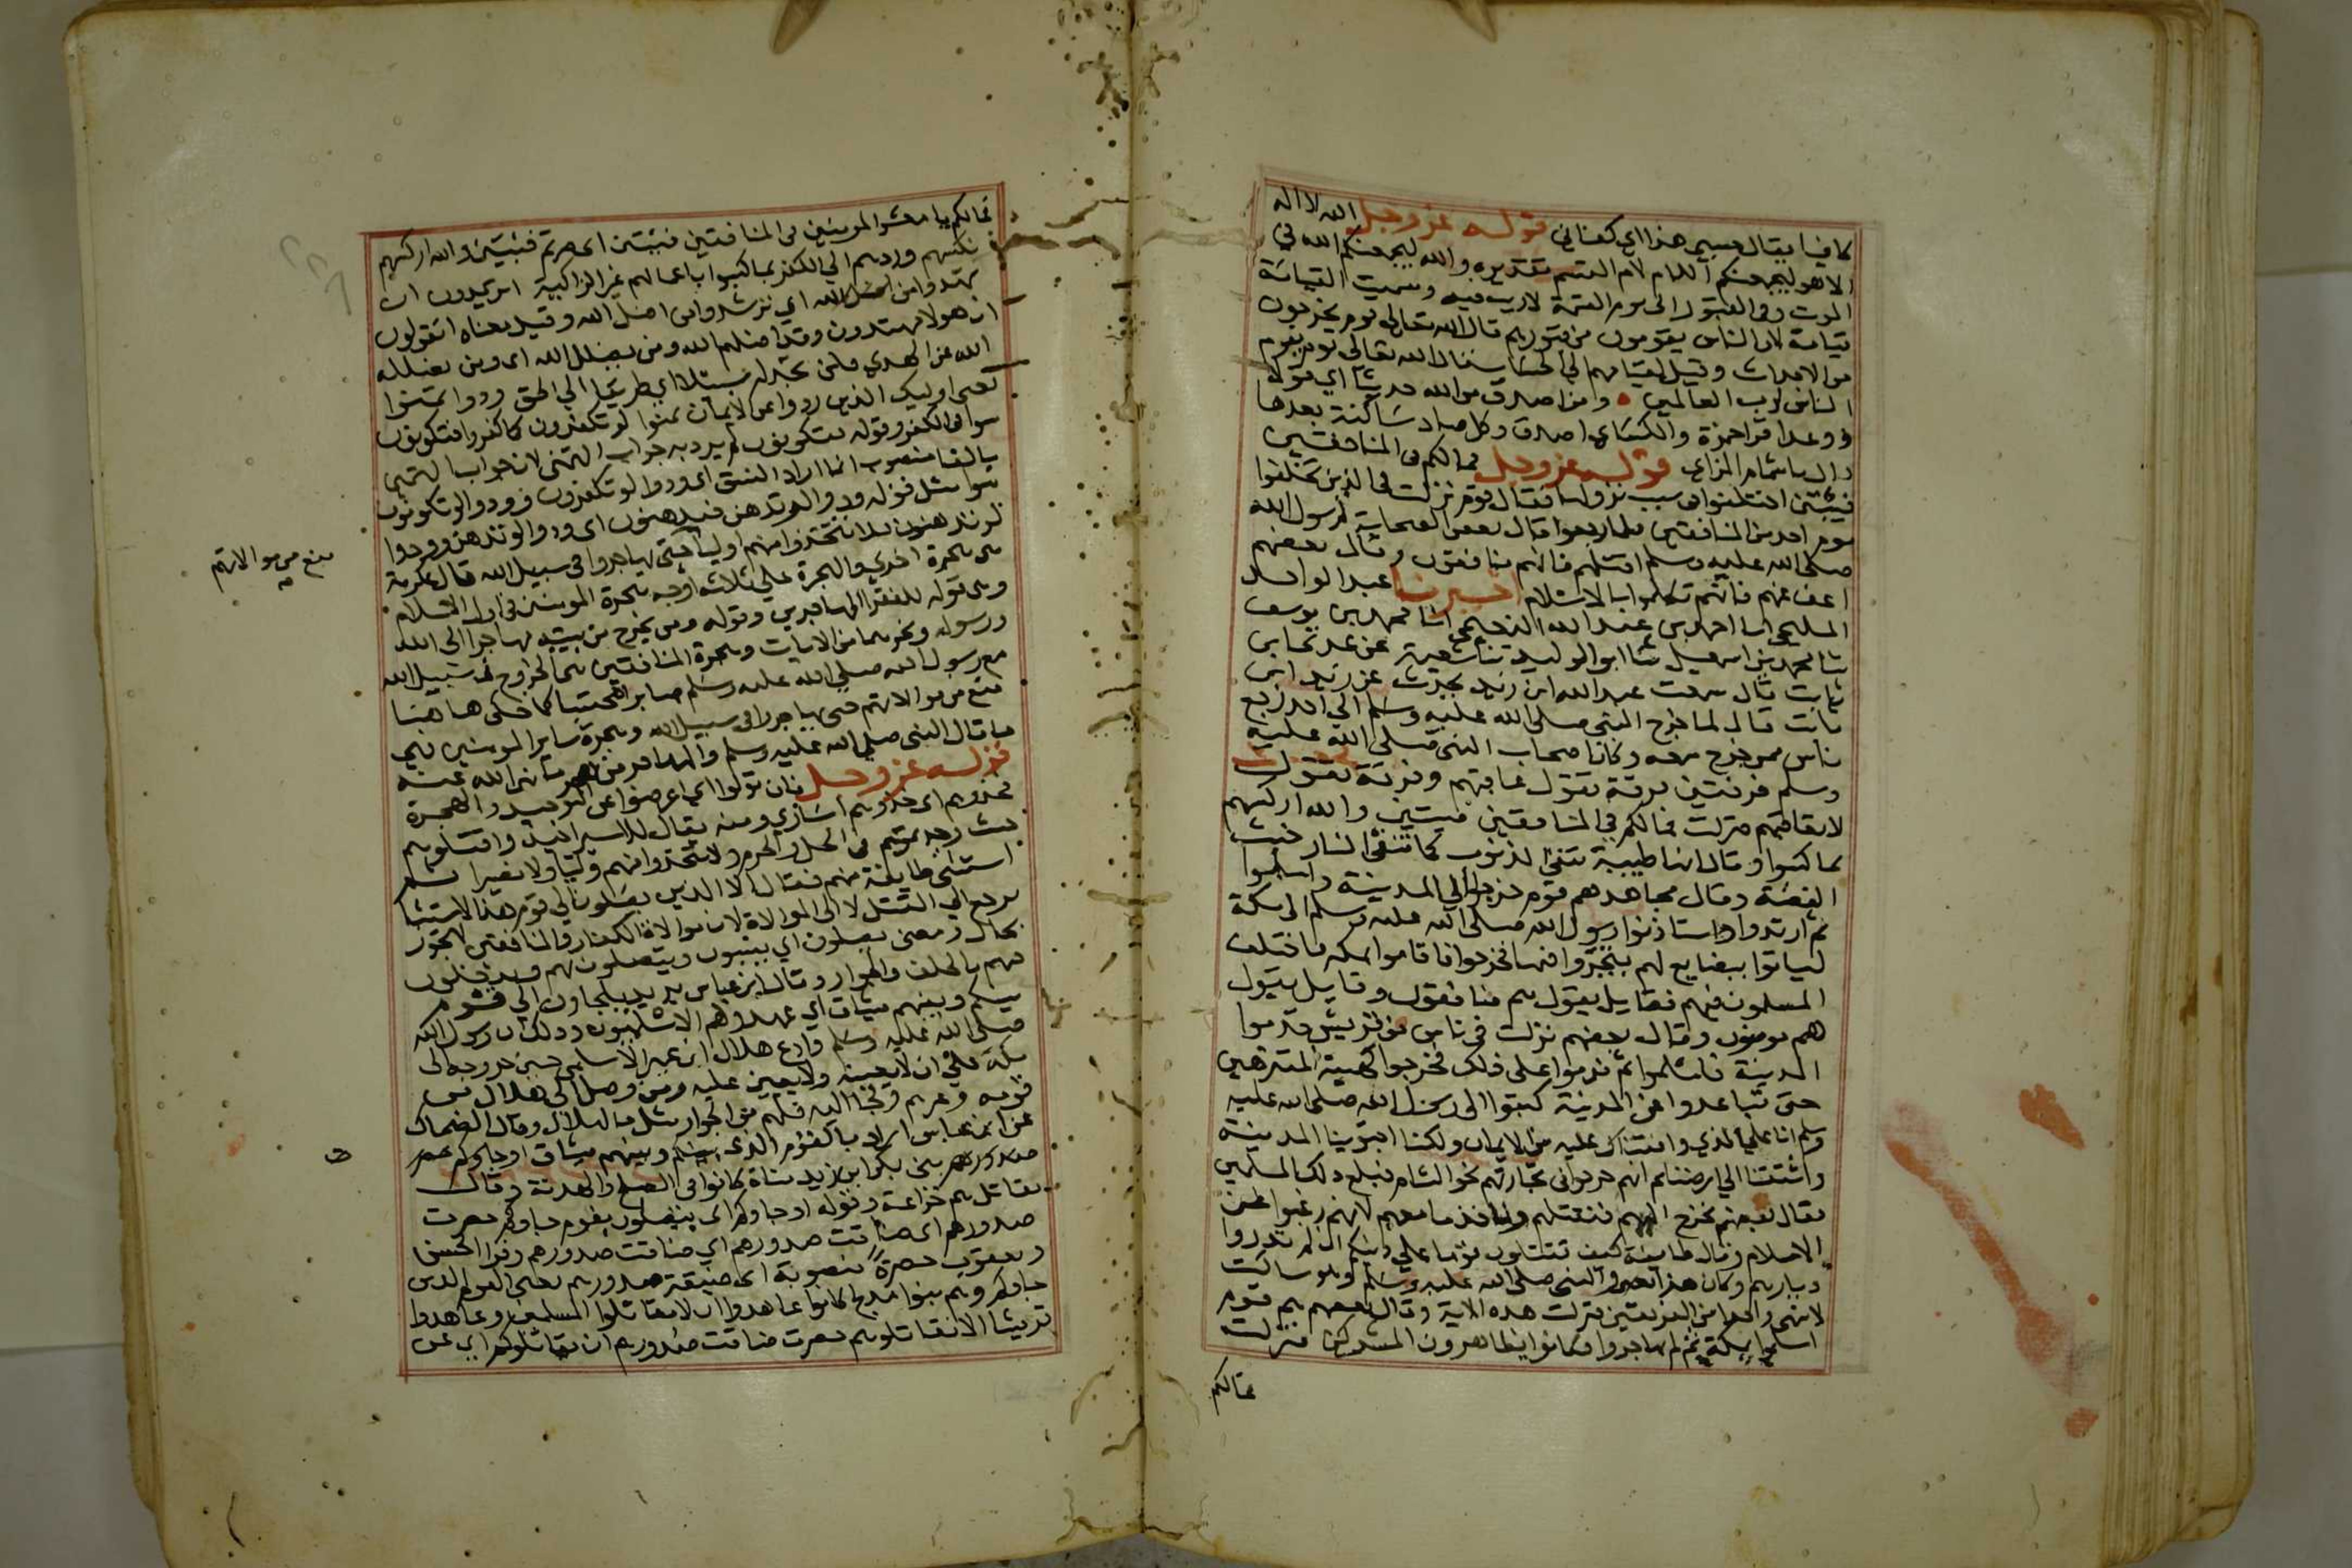 كافيا يقال حسبي هذا اي كفاني قوله عز وجل الله لا اله
الا هو ليجمعنكم اللام لام القسم تقديره والله ليجمعنكم الله في
الموت وفي القبور الى يوم القيمة لا ريب فيه وسميت القيامة
قيامة لان الناس يقومون من قبورهم قال الله تعالى يوم يخرجون
من الاجداث وقيل لقيامهم الى الحساب قال الله تعالى يوم يقوم
الناس لرب العالمين ومن اصدق من الله حديثا اي قولا
ووعدا قرا حمزة والكسائي اصدق وكل صاد ساكنة بعدها
دال باشمام الزاي قوله عز وجل فما لكم في المنافقين
فئتين اختلفوا في سبب نزولها فقال قوم نزلت في الذين تخلفوا
يوم احد من المنافقين فلما رجعوا قال بعض الصحابة لرسول الله
صلى الله عليه وسلم اقتلهم فانهم منافقون وقال بعضهم
اعف عنهم فانهم تكلموا بالاسلام اخبرنا عبد الواحد
المليحي انا احمد بن عبد الله النعيمي انا محمد بن يوسف
ثنا محمد بن اسمعيل ثنا ابو الوليد ثنا شعبة عن عدي بن
ثابت قال سمعت عبد الله ابن زيد يحدث عن زيد ابن
ثابت قال لما خرج النبي صلى الله عليه وسلم الى احد رجع
ناس ممن خرج معه وكان اصحاب النبي صلى الله عليه
وسلم فرقتين فرقة تقول نقاتلهم وفرقة تقول
لا نقاتلهم فنزلت فما لكم في المنافقين فئتين والله اركسهم
بما كسبوا وقال انها طيبة تنفي الذنوب كما تنفي النار خبث
الفضة وقال مجاهد هم قوم خرجوا الى المدينة واسلموا
ثم ارتدوا واستاذنوا رسول الله صلى الله عليه وسلم الى مكة
لياتوا ببضايع لهم يتجروا فيها فخرجوا فاقاموا بمكه فاختلف
المسلمون فيهم فقايل يقول هم منافقون وقايل يقول
هم مومنون وقال بعضهم نزلت في ناس من قريش قدموا
المدينة فاسلموا ثم ندموا على ذلك فخرجوا كهيئة المتنزهين
حتى تباعدوا عن المدينة كتبوا الى رسول الله صلى الله عليه
وسلم انا على الذي وافقناك عليه من الايمان ولكنا اجتوينا المدينة
واشتقنا الى ارضنا ثم انهم خرجوا في تجارتهم نحو الشام فبلغ ذلك المسلمين
فقال بعضهم نخرج اليهم فنقتلهم وناخذ ما معهم لانهم رغبوا عن
الاسلام وقال طايفة كيف تقتلون قوما على دينكم ان لم يذروا
ديارهم وكان هذا بعين النبي صلى الله عليه وسلم وهو ساكت
لا ينهى واحدا من الفريقين فنزلت هذه الاية وقال بعضهم هم قوم
اسلموا بمكة ثم لم يهاجروا وكانوا يظاهرون المشركين فنزلت
فما لكم
فما لكم يا معشر المومنين في المنافقين فئتين اي صرتم فئتين والله اركسهم
نكسهم وردهم الى الكفر بما كسبوا باعمالهم غير الزاكية اتريدون ان
تهتدوا من اضل الله اي ترشدوا من اضل الله وقيل معناه اتقولون
ان هولا مهتدون وقد اضلهم الله ومن يضلل الله اي ومن يضلله
الله عن الهدي فلن تجد له سبيلا اي طريقا الى الحق ودوا تمنوا
يعني اوليك الذين ردوا عن الايمان تمنوا لو تكفرون كما كفروا فتكونون
سوا في الكفر وقوله فتكونون لم يرد به جواب التمني لان جواب التمني
بالفا منصوب انما اراد النسق اي ودوا لو تكفرون وودوا لو تكونون
سوا مثل قوله ودوا لو تدهن فيدهنون اي ودوا لو تدهن وودوا
لو تدهنون فلا تتخذوا منهم اوليا حتى يهاجروا في سبيل الله قال عكرمة
هي هجرة اخري والهجرة على ثلاثه اوجه هجرة المومنين في اول الاسلام
وهي قوله للفقرا المهاجرين وقوله ومن يخرج من بيته مهاجرا الى الله
ورسوله ونحوهما من الايات وهجرة المنافقين هي الخروج في سبيل الله
مع رسول الله صلى الله عليه وسلم صابرا محتسبا كما حكى هاهنا
منع من موالاتهم حتى يهاجروا في سبيل الله وهجرة ساير المومنين هي
ما قال النبي صلى الله عليه وسلم والمهاجر من هجر ما نهى الله عنه
قوله عز وجل فان تولوا اي اعرضوا عن التوحيد والهجرة
فخذوهم اي خذوهم اسارى ومنه يقال للاسير اخيذ واقتلوهم
حيث وجدتموهم في الحل والحرم ولا تتخذوا منهم وليا ولا نصيرا ثم
استثنى طايفة منهم فقال الا الذين يصلون الى قوم هذا الاستثنا
يرجع الى القتل لا الى الموالاة لان موالاة الكفار والمنافقين لا تجوز
بحال ومعنى يصلون اي ينتسبون ويتصلون بهم ويدخلون
فيهم بالحلف والجوار وقال ابن عباس يريد يلجاون الى قوم
بينكم وبينهم ميثاق اي عهد وهم الاسلميون وذلك ان رسول الله
صلى الله عليه وسلم وادع هلال ابن عمير الاسلمي حين خروجه الى
مكة على ان لا يعينه ولا يعين عليه ومن وصل الى هلال من
قومه وغيرهم ولجا اليه فلهم من الجوار مثل ما لهلال وقال الضحاك
عن ابن عباس اراد بالقوم الذي بينكم وبينهم ميثاق او جاوكم حصرت
صدورهم بني بكر ابن زيد مناة كانوا في الصلح والهدنة وقال
مقاتل هم خزاعة وقوله او جاوكم اي يتصلون بقوم جاوكم حصرت
صدورهم اي ضاقت صدورهم اي ضاقت صدورهم وقرا الحسن
ويعقوب حصرة منصوبة اي ضيقة صدورهم يعني القوم الذين
جاوكم وهم بنوا مدلج كانوا عاهدوا ان لا يقاتلوا المسلمين وعاهدوا
قريشا الا يقاتلوهم حصرت ضاقت صدورهم ان يقاتلوكم اي عن
منع من موالاتهم